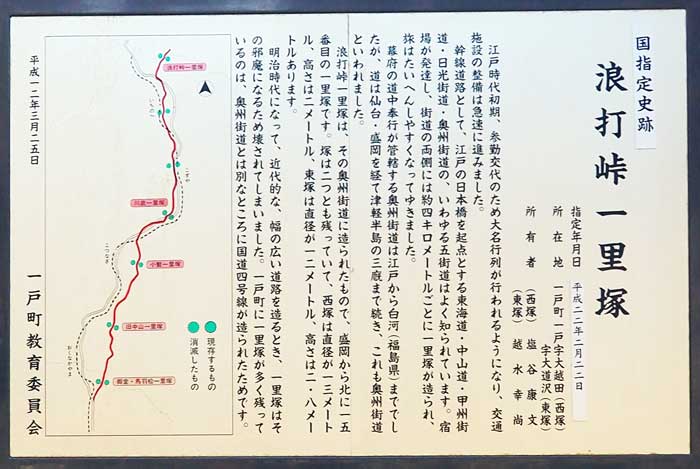 国指定史跡
浪打峠一里塚
指定年月日 平成二二年二月二二日
所在地 一戸町一戸字大越田(西塚)
字大道沢(東塚)
所有者 (西塚)塩谷康文
(東塚)越水幸尚
江戸時代初期、参勤交代のため大名行列が行われるようになり、交通
施設の整備は急速に進みました。
幹線道路として、江戸の日本橋を起点とする東海道・中山道・甲州街
道・日光街道・奥州街道の、いわゆる五街道はよく知られています。宿
場が発達し、街道の両側には約四キロメートルごとに一里塚が造られ、
旅はたいへんしやすくなってゆきました。
幕府の道中奉行が管轄する奥州街道は江戸から白河(福島県)まででし
たが、道は仙台・盛岡を経て津軽半島の三廐まで続き、これも奥州街道
といわれました。
浪打峠一里塚は、その奥州街道に造られたもので、盛岡から北に一五
番目の一里塚です。塚は二つとも残っていて、西塚は直径が一三メート
ル、高さは二メートル、東塚は直径が一二メートル、高さは二・八メー
トルあります。
明治時代になって、近代的な、幅の広い道路を造るとき、一里塚はそ
の邪魔になるため壊されてしまいました。一戸町に一里塚が多く残って
いるのは、奥州街道とは別なところに国道四号線が造られたためです。
浪打峠一里塚
いちのへ
こずや
川底一里塚
こつなぎ
小繋一里塚
田中山一里塚
おくなかやま
御堂・馬羽松一里塚
現存するもの
消滅したもの
平成一二年三月二五日
一戸町教育委員会